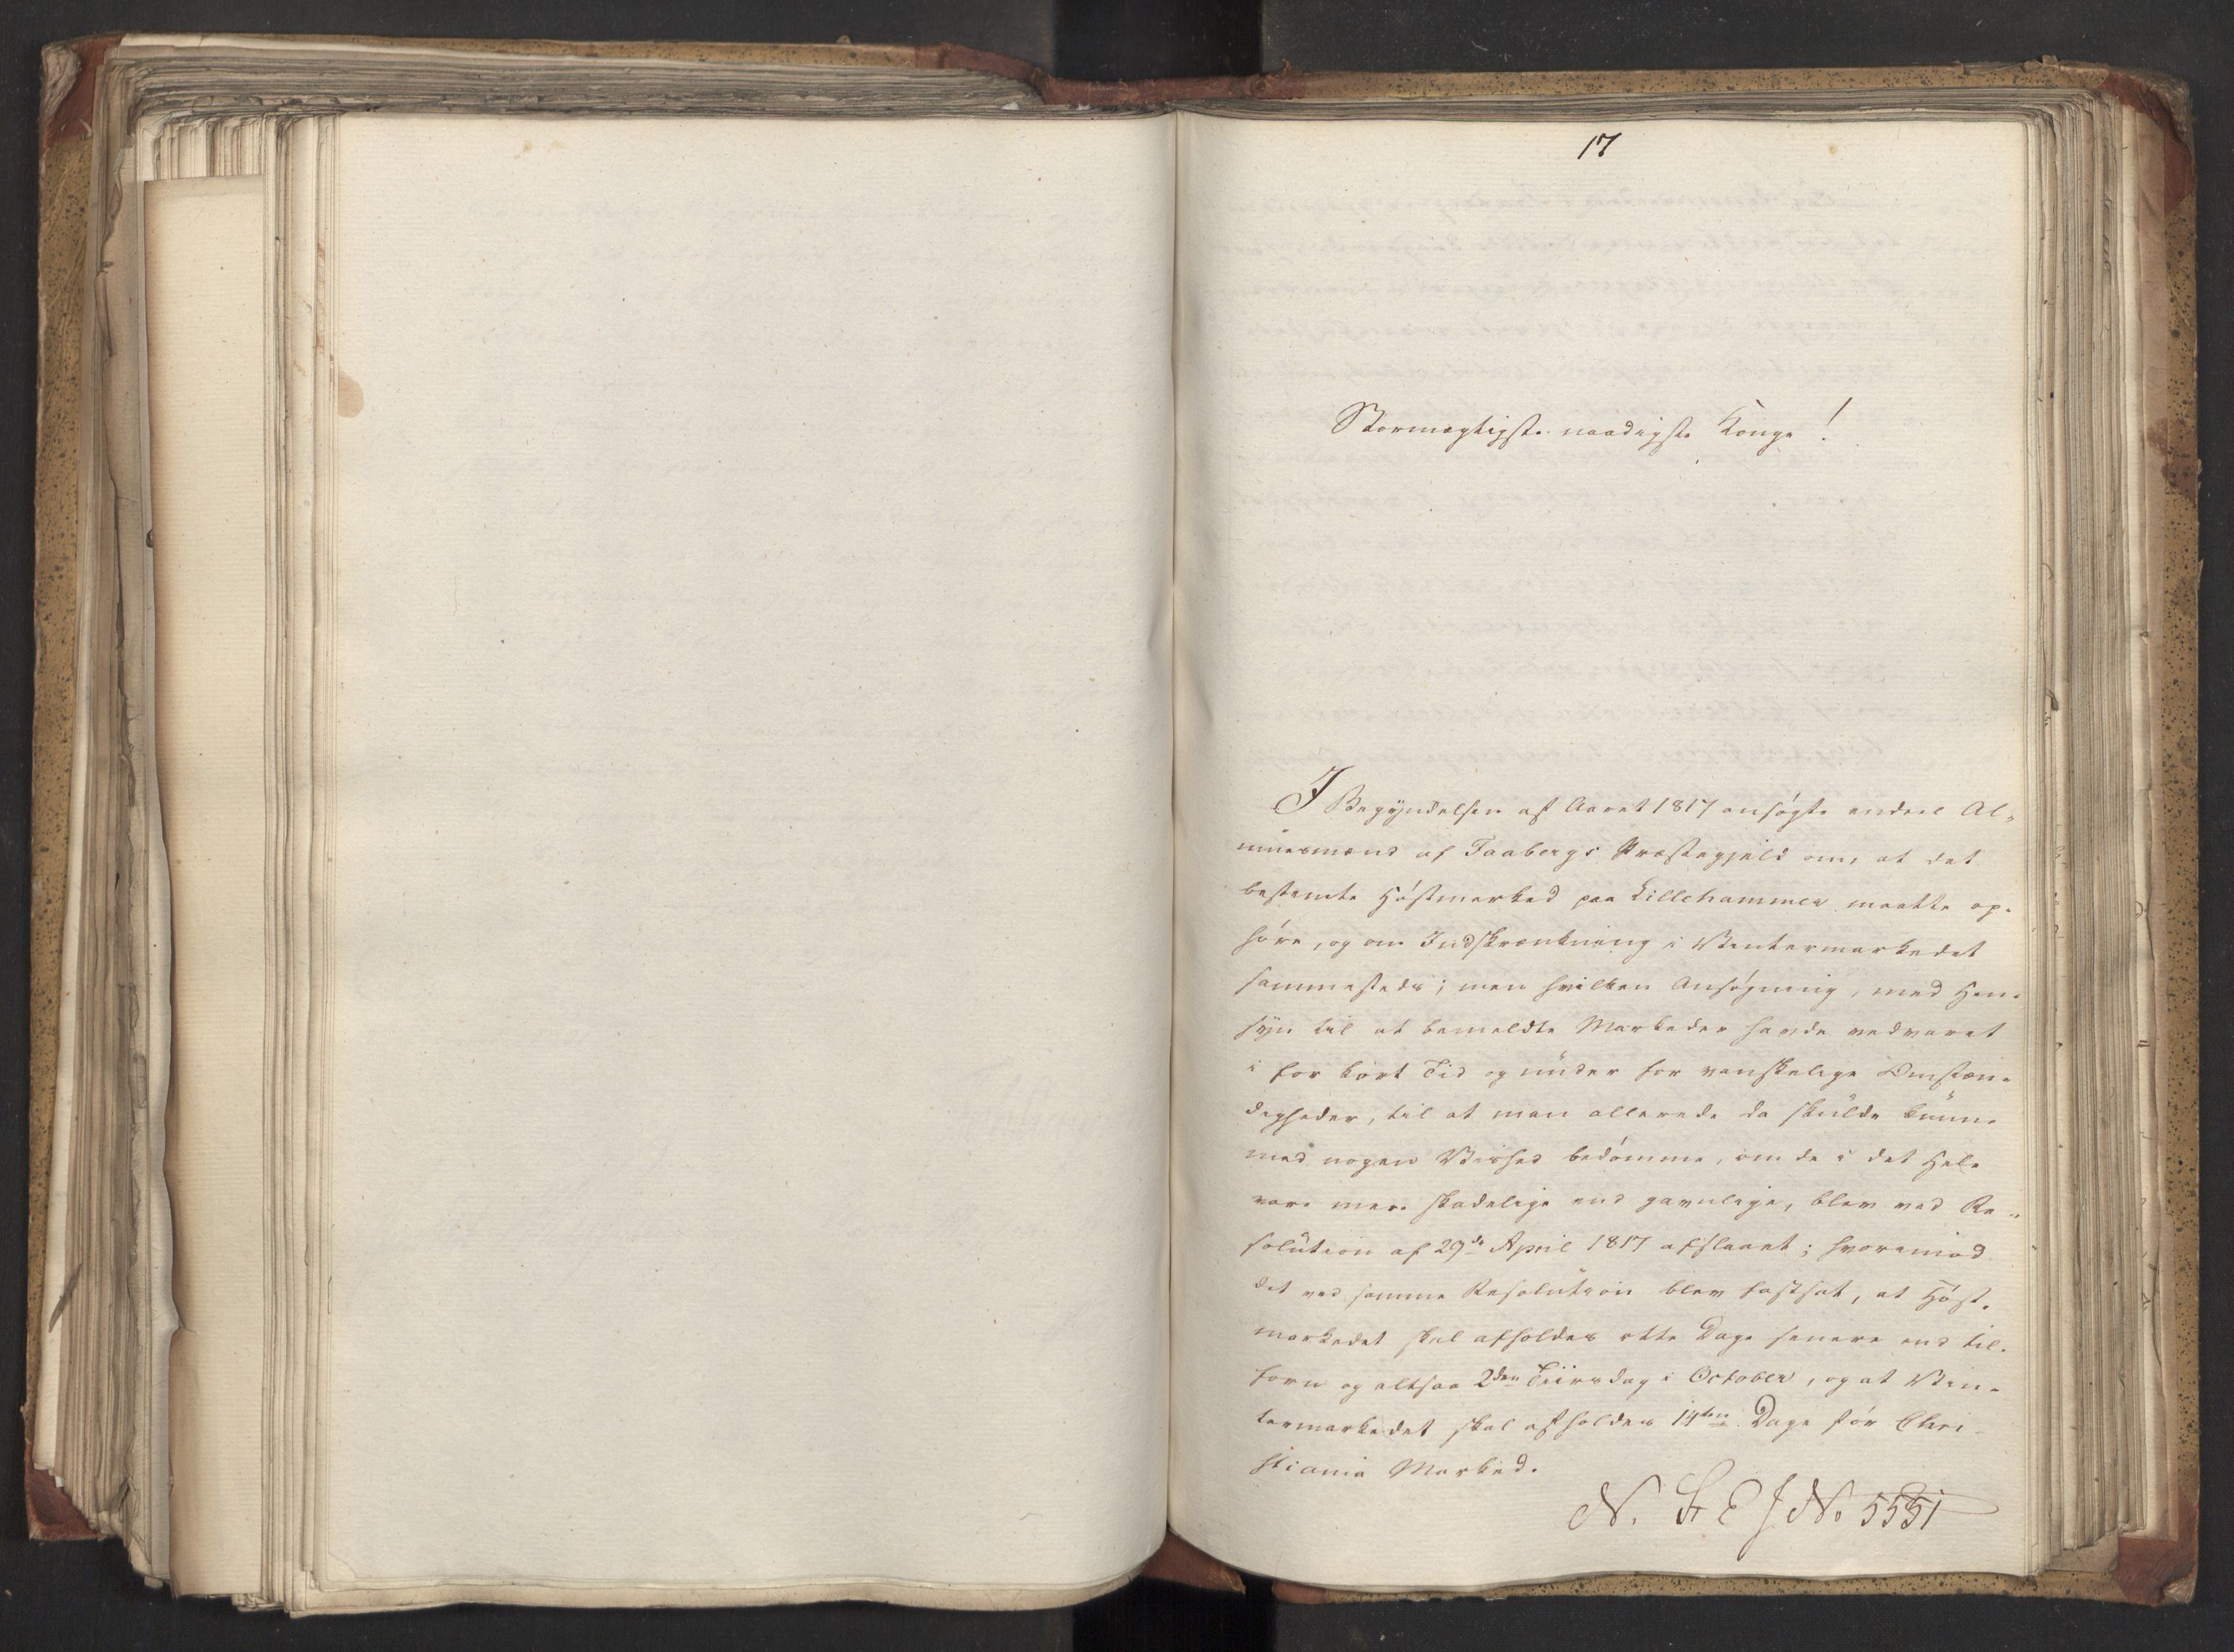 17
Stormægtigste naadigste Konge!
I Begyndelsen af Aaret 1817 ansøgte endeel Al„
muesmænd af Faabergs Præstegjeld om, at det
bestemte Høstmarked paa Lillehammer maatte op-
høre, og om Indskrænkning i Vintermarkedet
sammesteds; men hvilken Ansøgning, med Hen-
syn til at bemeldte Markeder havde vedvaret
i for kort Tid og under for vanskelige Omstæn-
digheder, til at man allerede da skulde kunne
med nogen Vished bedømme, om de i det Hele
vare mere skadelige end gavnlige, blev ved Re-
solution af 29de April 1817 afslaaet; hvorimod
det ved samme Resolution blev fastsat, at Høst-
markedet skal afholdes otte Dage senere end til-
forn og altsaa 2den Tiirsdag i October, og at Vin-
termarkedet skal afholdes 14ten Dage før Chri-
stiania Marked.
N. 5551